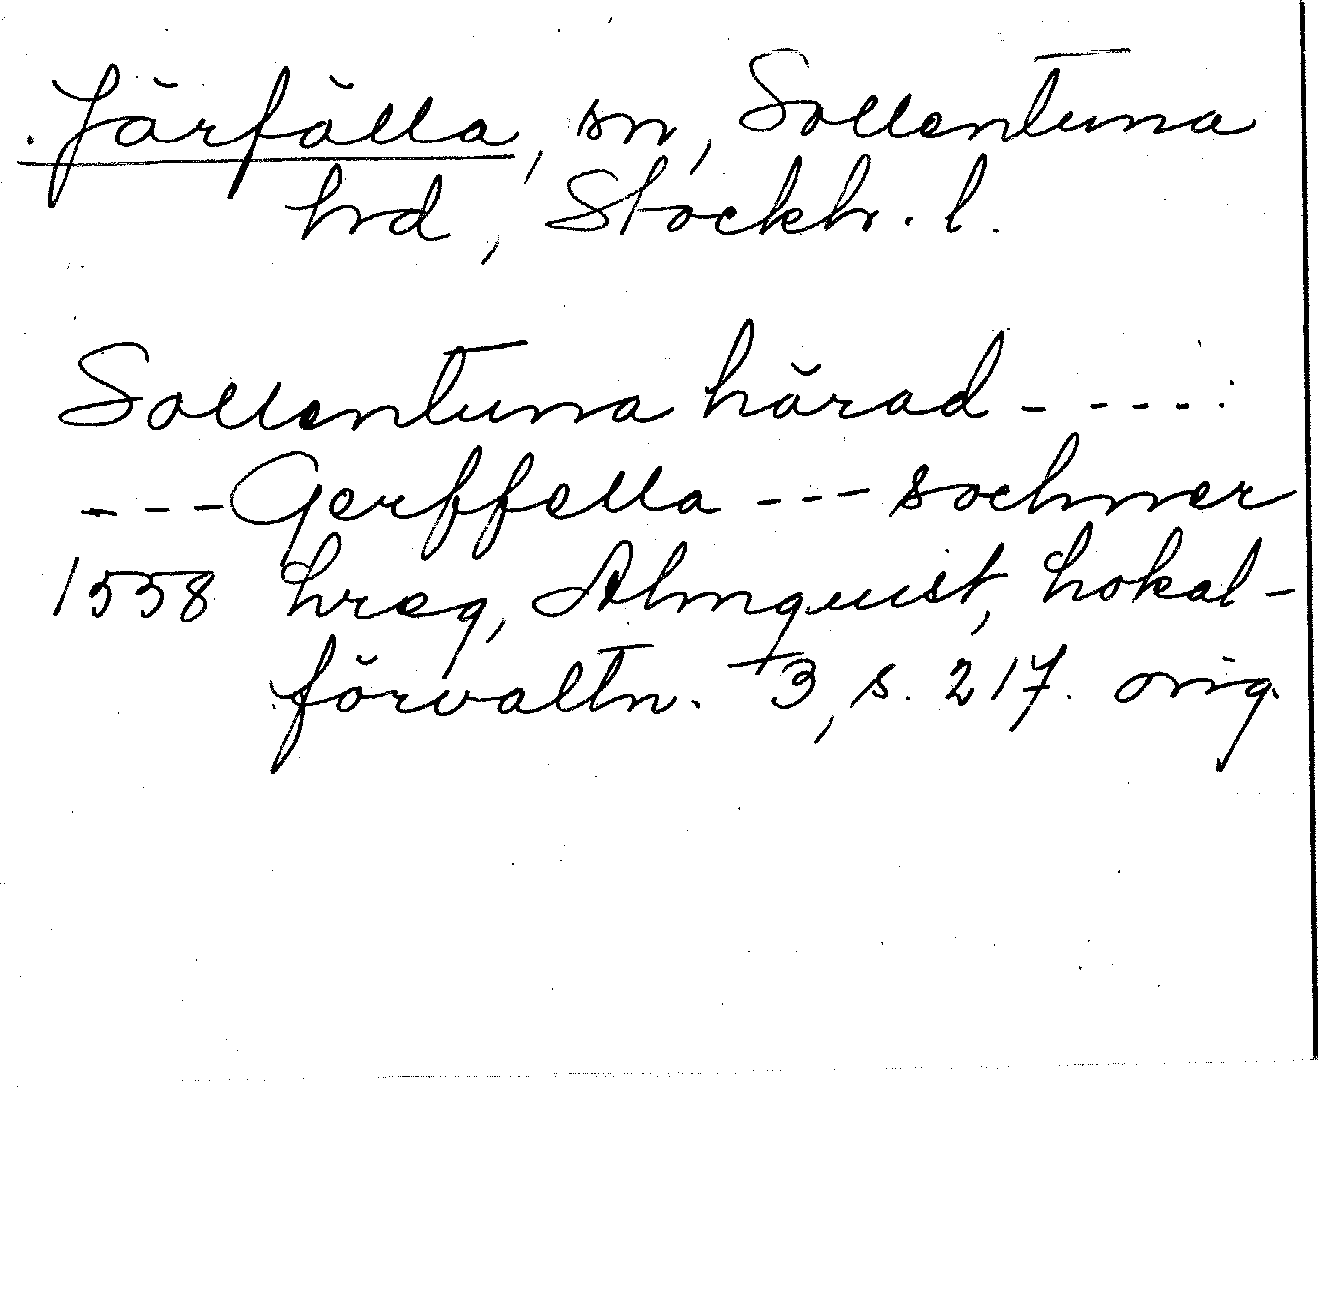 Järfälla, sn, Sollentuna
hd, Stockh. l.
Sollentuna härad - - - - - :
- - - Gerffella - - - sochner
1558 hreg, Almquist, Lokal-
förvaltn. 3, s. 217. orig.